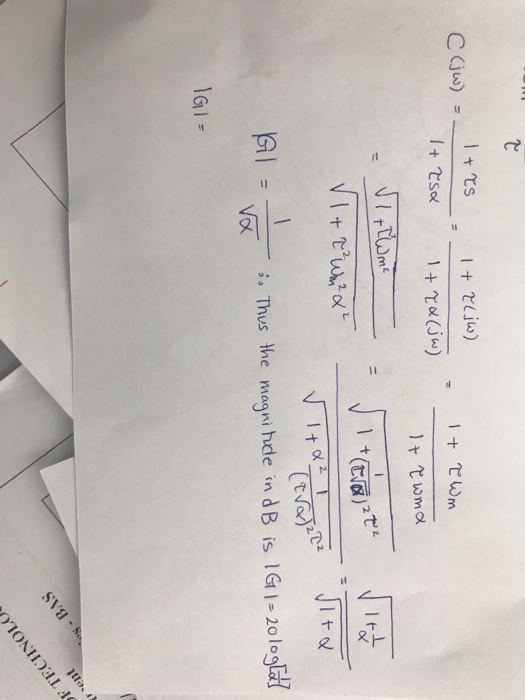 τ
C(jω) = (1 + τs)/(1 + τsα) = (1 + τ(jω))/(1 + τα(jω)) = (1 + τωm)/(1 + τωmα)
= √(1 + τ²ωm²)/√(1 + τ²ωm²α²) = √(1 + 1/(τ√α)² τ²)/√(1 + α² 1/(τ√α)² τ²) = √(1 + 1/α)/√(1 + α)
|G| = 1/√α ∴ Thus the magnitude in dB is |G| = 20log[1/√α]
|G| =
- BAS
TECHNOLO